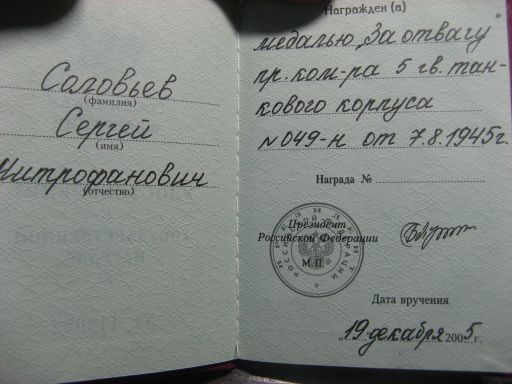 Соловьев
(фамилия)
Сергей
(имя)
Митрофанович
(отчество)
Награжден (а)
медалью „За отвагу"
пр. ком-ра 5 гв. тан-
кового корпуса
№ 049-н от 7.8.1945г.
Награда №
Президент
Российской Федерации
М.П.
Дата вручения
„19" декабря 2005 г.